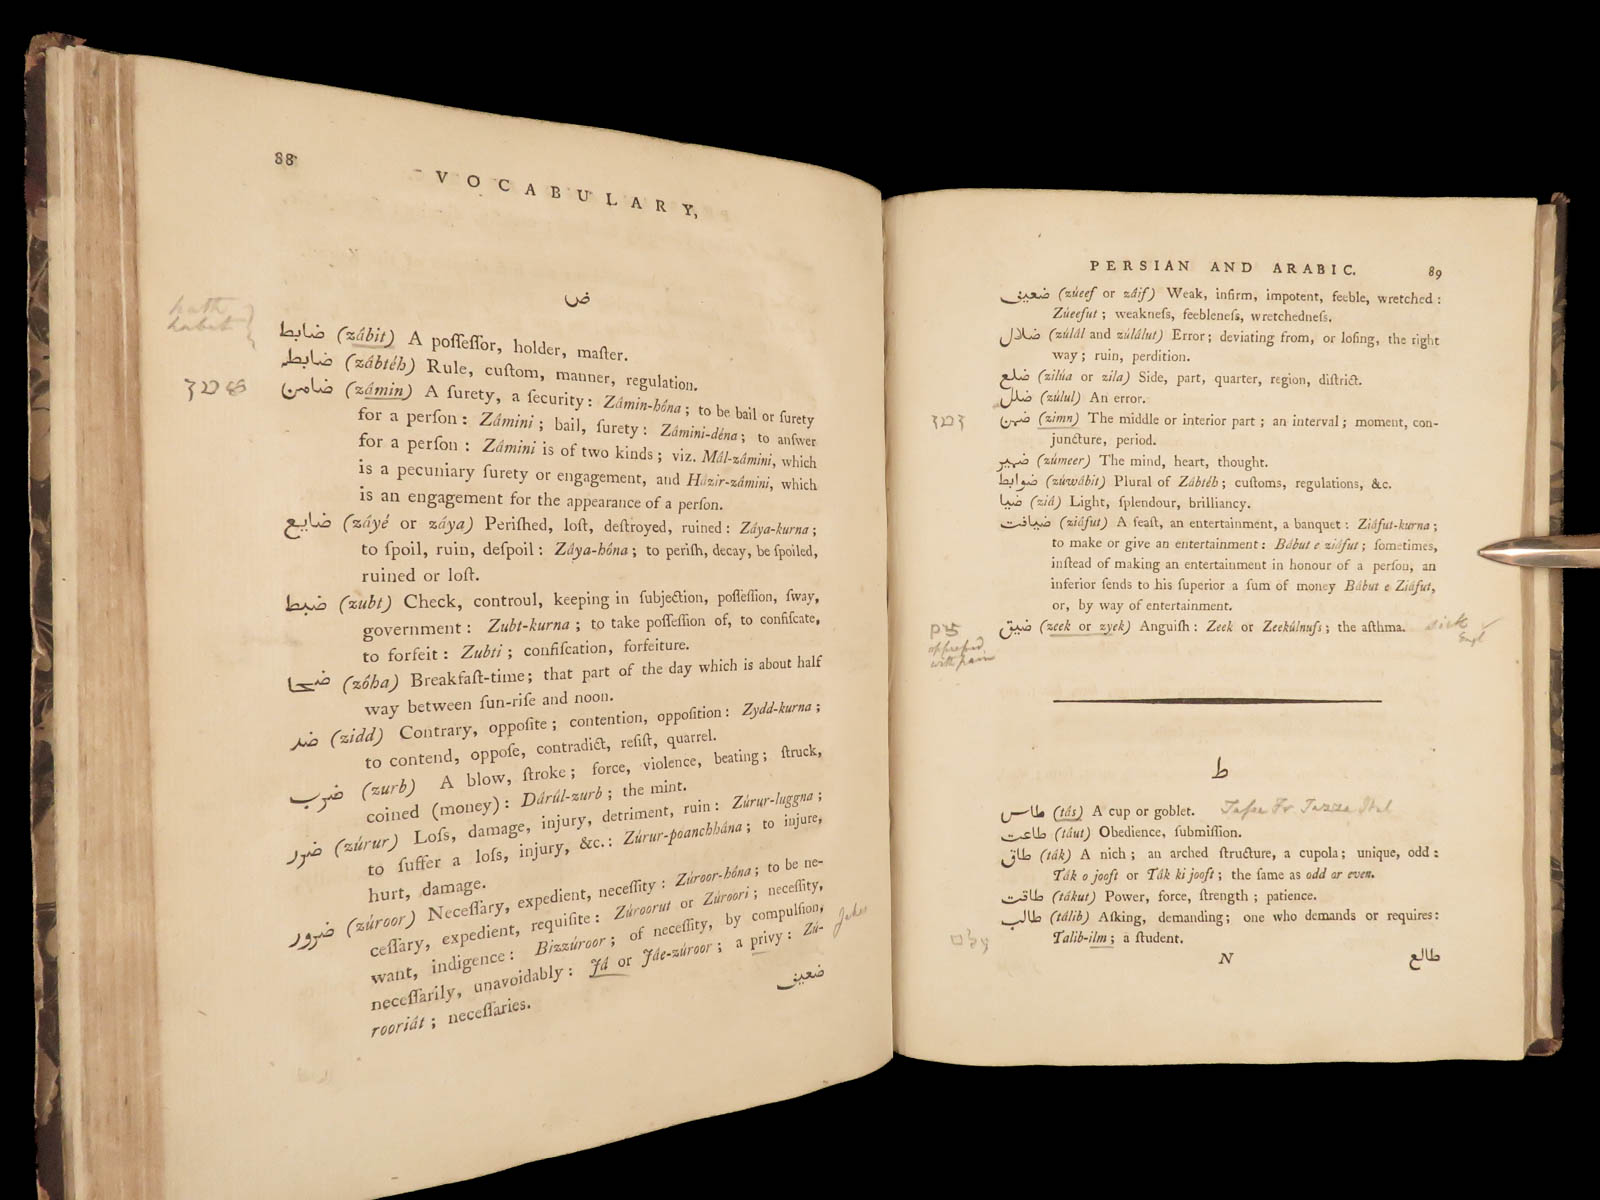 88
VOCABULARY,
ض
hath
habet
ضابط (zábit) A poſſeſſor, holder, maſter.
ضابطہ (zábtéh) Rule, cuſtom, manner, regulation.
ضامن (zámin) A ſurety, a ſecurity: Zámin-hóna; to be bail or ſurety
for a perſon: Zámini; bail, ſurety: Zámini-déna; to anſwer
for a perſon: Zámini is of two kinds; viz. Mál-zámini, which
is a pecuniary ſurety or engagement, and Házir-zámini, which
is an engagement for the appearance of a perſon.
ضايع (záyé or záya) Periſhed, loſt, deſtroyed, ruined: Záya-kurna;
to ſpoil, ruin, deſpoil: Záya-hóna; to periſh, decay, be ſpoiled,
ruined or loſt.
ضبط (zubt) Check, controul, keeping in ſubjection, poſſeſſion, ſway,
government: Zubt-kurna; to take poſſeſſion of, to confiſcate,
to forfeit: Zubti; confiſcation, forfeiture.
ضحا (zóha) Breakfaſt-time; that part of the day which is about half
way between ſun-riſe and noon.
ضد (zidd) Contrary, oppoſite; contention, oppoſition: Zydd-kurna;
to contend, oppoſe, contradict, reſiſt, quarrel.
ضرب (zurb) A blow, ſtroke; force, violence, beating; ſtruck,
coined (money): Dárúl-zurb; the mint.
ضرر (zúrur) Loſs, damage, injury, detriment, ruin: Zúrur-luggna;
to ſuffer a loſs, injury, &c.: Zúrur-poanchhána; to injure,
hurt, damage.
ضرور (zúroor) Neceſſary, expedient, neceſſity: Zúroor-hóna; to be ne-
ceſſary, expedient, requiſite: Zúroorut or Zúroori; neceſſity,
want, indigence: Bizzúroor; of neceſſity, by compulſion,
neceſſarily, unavoidably: Já or Jáe-zúroor; a privy: Zú-
rooriát; neceſſaries.
ضعيف
PERSIAN AND ARABIC.
89
ضعيف (zúeef or záif) Weak, infirm, impotent, feeble, wretched:
Zúeefut; weakneſs, feebleneſs, wretchedneſs.
ضلال (zúlál and zúlálut) Error; deviating from, or loſing, the right
way; ruin, perdition.
ضلع (zilúa or zila) Side, part, quarter, region, diſtrict.
ضلل (zúlul) An error.
ضمن (zimn) The middle or interior part; an interval; moment, con-
juncture, period.
ضمير (zúmeer) The mind, heart, thought.
ضوابط (zúwábit) Plural of Zábtéh; cuſtoms, regulations, &c.
ضيا (ziá) Light, ſplendour, brilliancy.
ضيافت (ziáfut) A feaſt, an entertainment, a banquet: Ziáfut-kurna;
to make or give an entertainment: Bábut e ziáfut; ſometimes,
inſtead of making an entertainment in honour of a perſon, an
inferior ſends to his ſuperior a ſum of money Bábut e Ziáfut,
or, by way of entertainment.
ضيق (zeek or zyek) Anguiſh: Zeek or Zeekúlnufs; the aſthma. sick
Engl
oppressed
with pain
ط
طاس (tás) A cup or goblet. Tasse Fr Tazza Ital
طاعت (táut) Obedience, ſubmiſſion.
طاق (ták) A nich; an arched ſtructure, a cupola; unique, odd:
Ták o jooft or Ták ki jooft; the ſame as odd or even.
طاقت (tákut) Power, force, ſtrength; patience.
طالب (tálib) Aſking, demanding; one who demands or requires:
Talib-ilm; a ſtudent.
N
طالع